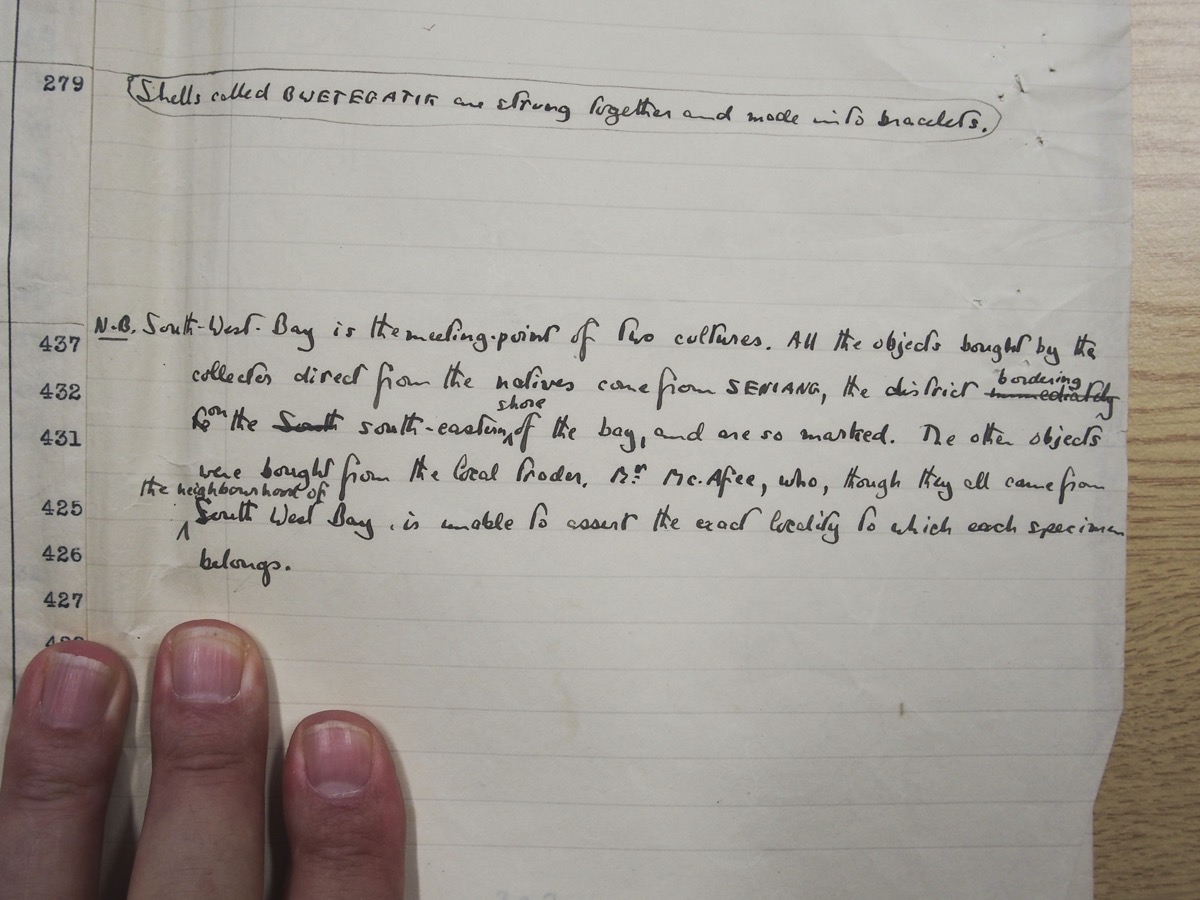 279 Shells called BWETEGATIK are strung together and made into bracelets.
437 N.B. South-West-Bay is the meeting-point of two cultures. All the objects bought by the
432 collector direct from the natives come from SENIANG, the district immediately bordering
431 on the South south-eastern shore of the bay, and are so marked. The other objects
were bought from the local trader, Mr. Mc.Afee, who, though they all came from
425 the neighbourhood of South West Bay, is unable to assert the exact locality to which each specimen
426 belongs.
427